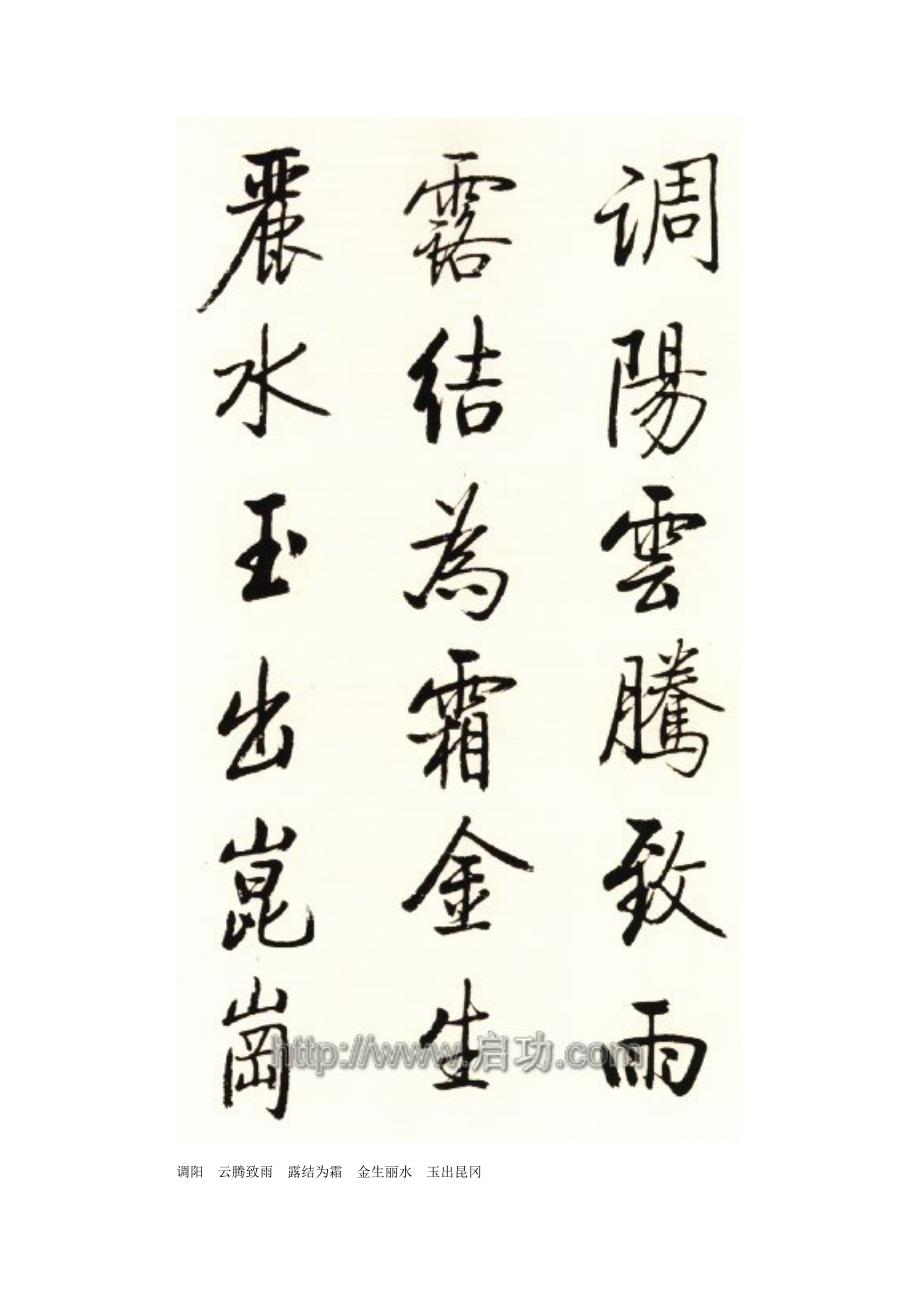 调陽雲騰致雨
露結為霜金生
麗水玉出崑崗
http://www.启功.com
调阳 云腾致雨 露结为霜 金生丽水 玉出昆冈